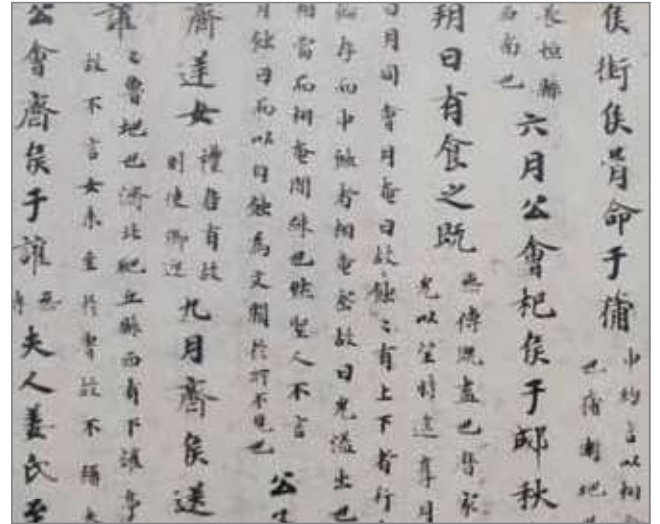 侯衛侯胥命于蒲申約言以相
也蒲衛地
長垣縣
西南也六月公會杞侯于郕秋
朔日有食之既無傳既盡也曆家
光以望時遙奪月
日月同會月奄日故蝕〻有上下者行
輪存而中蝕者相奄密故日光溢出也
相當而相奄間疎也然聖人不言
月蝕日而以自蝕為文闕於所不見也公
齊逆女禮君有故
則使卿逆九月齊侯送
讙〻魯地也濟北蛇丘縣西有下讙亭
故不言女未至於魯故不稱夫
公會齊侯于讙無傳夫人姜氏至